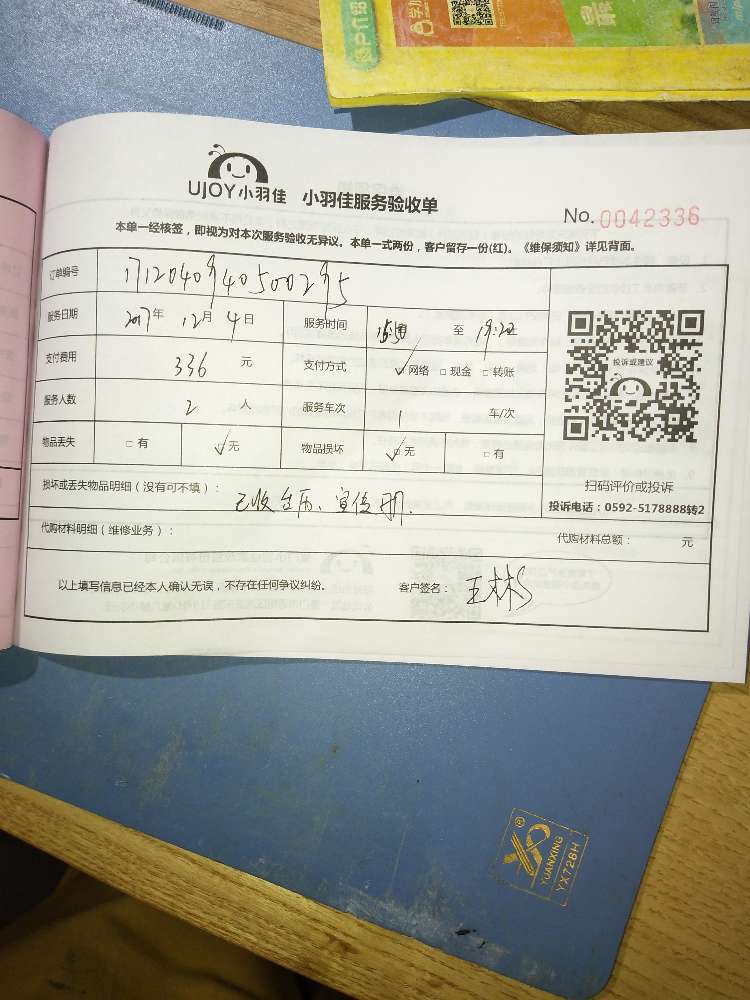 UJOY小羽佳 小羽佳服务验收单
No.0042336
本单一经核签，即视为对本次服务验收无异议。本单一式两份，客户留存一份(红)。《维保须知》详见背面。
订单编号
服务日期 2017年 12月 4日 服务时间 至 19:20
支付费用 336 元 支付方式 ✓网络 □现金 □转账
投诉或建议
服务人数 2 人 服务车次 1 车/次
物品丢失 □有 ✓无 物品损坏 ✓无 □有
扫码评价或投诉
损坏或丢失物品明细（没有可不填）： 已收台历、宣传册.
投诉电话：0592-5178888转2
代购材料明细（维修业务）： 代购材料总额： 元
以上填写信息已经本人确认无误，不存在任何争议纠纷。 客户签名：
YUANXING
YX728H